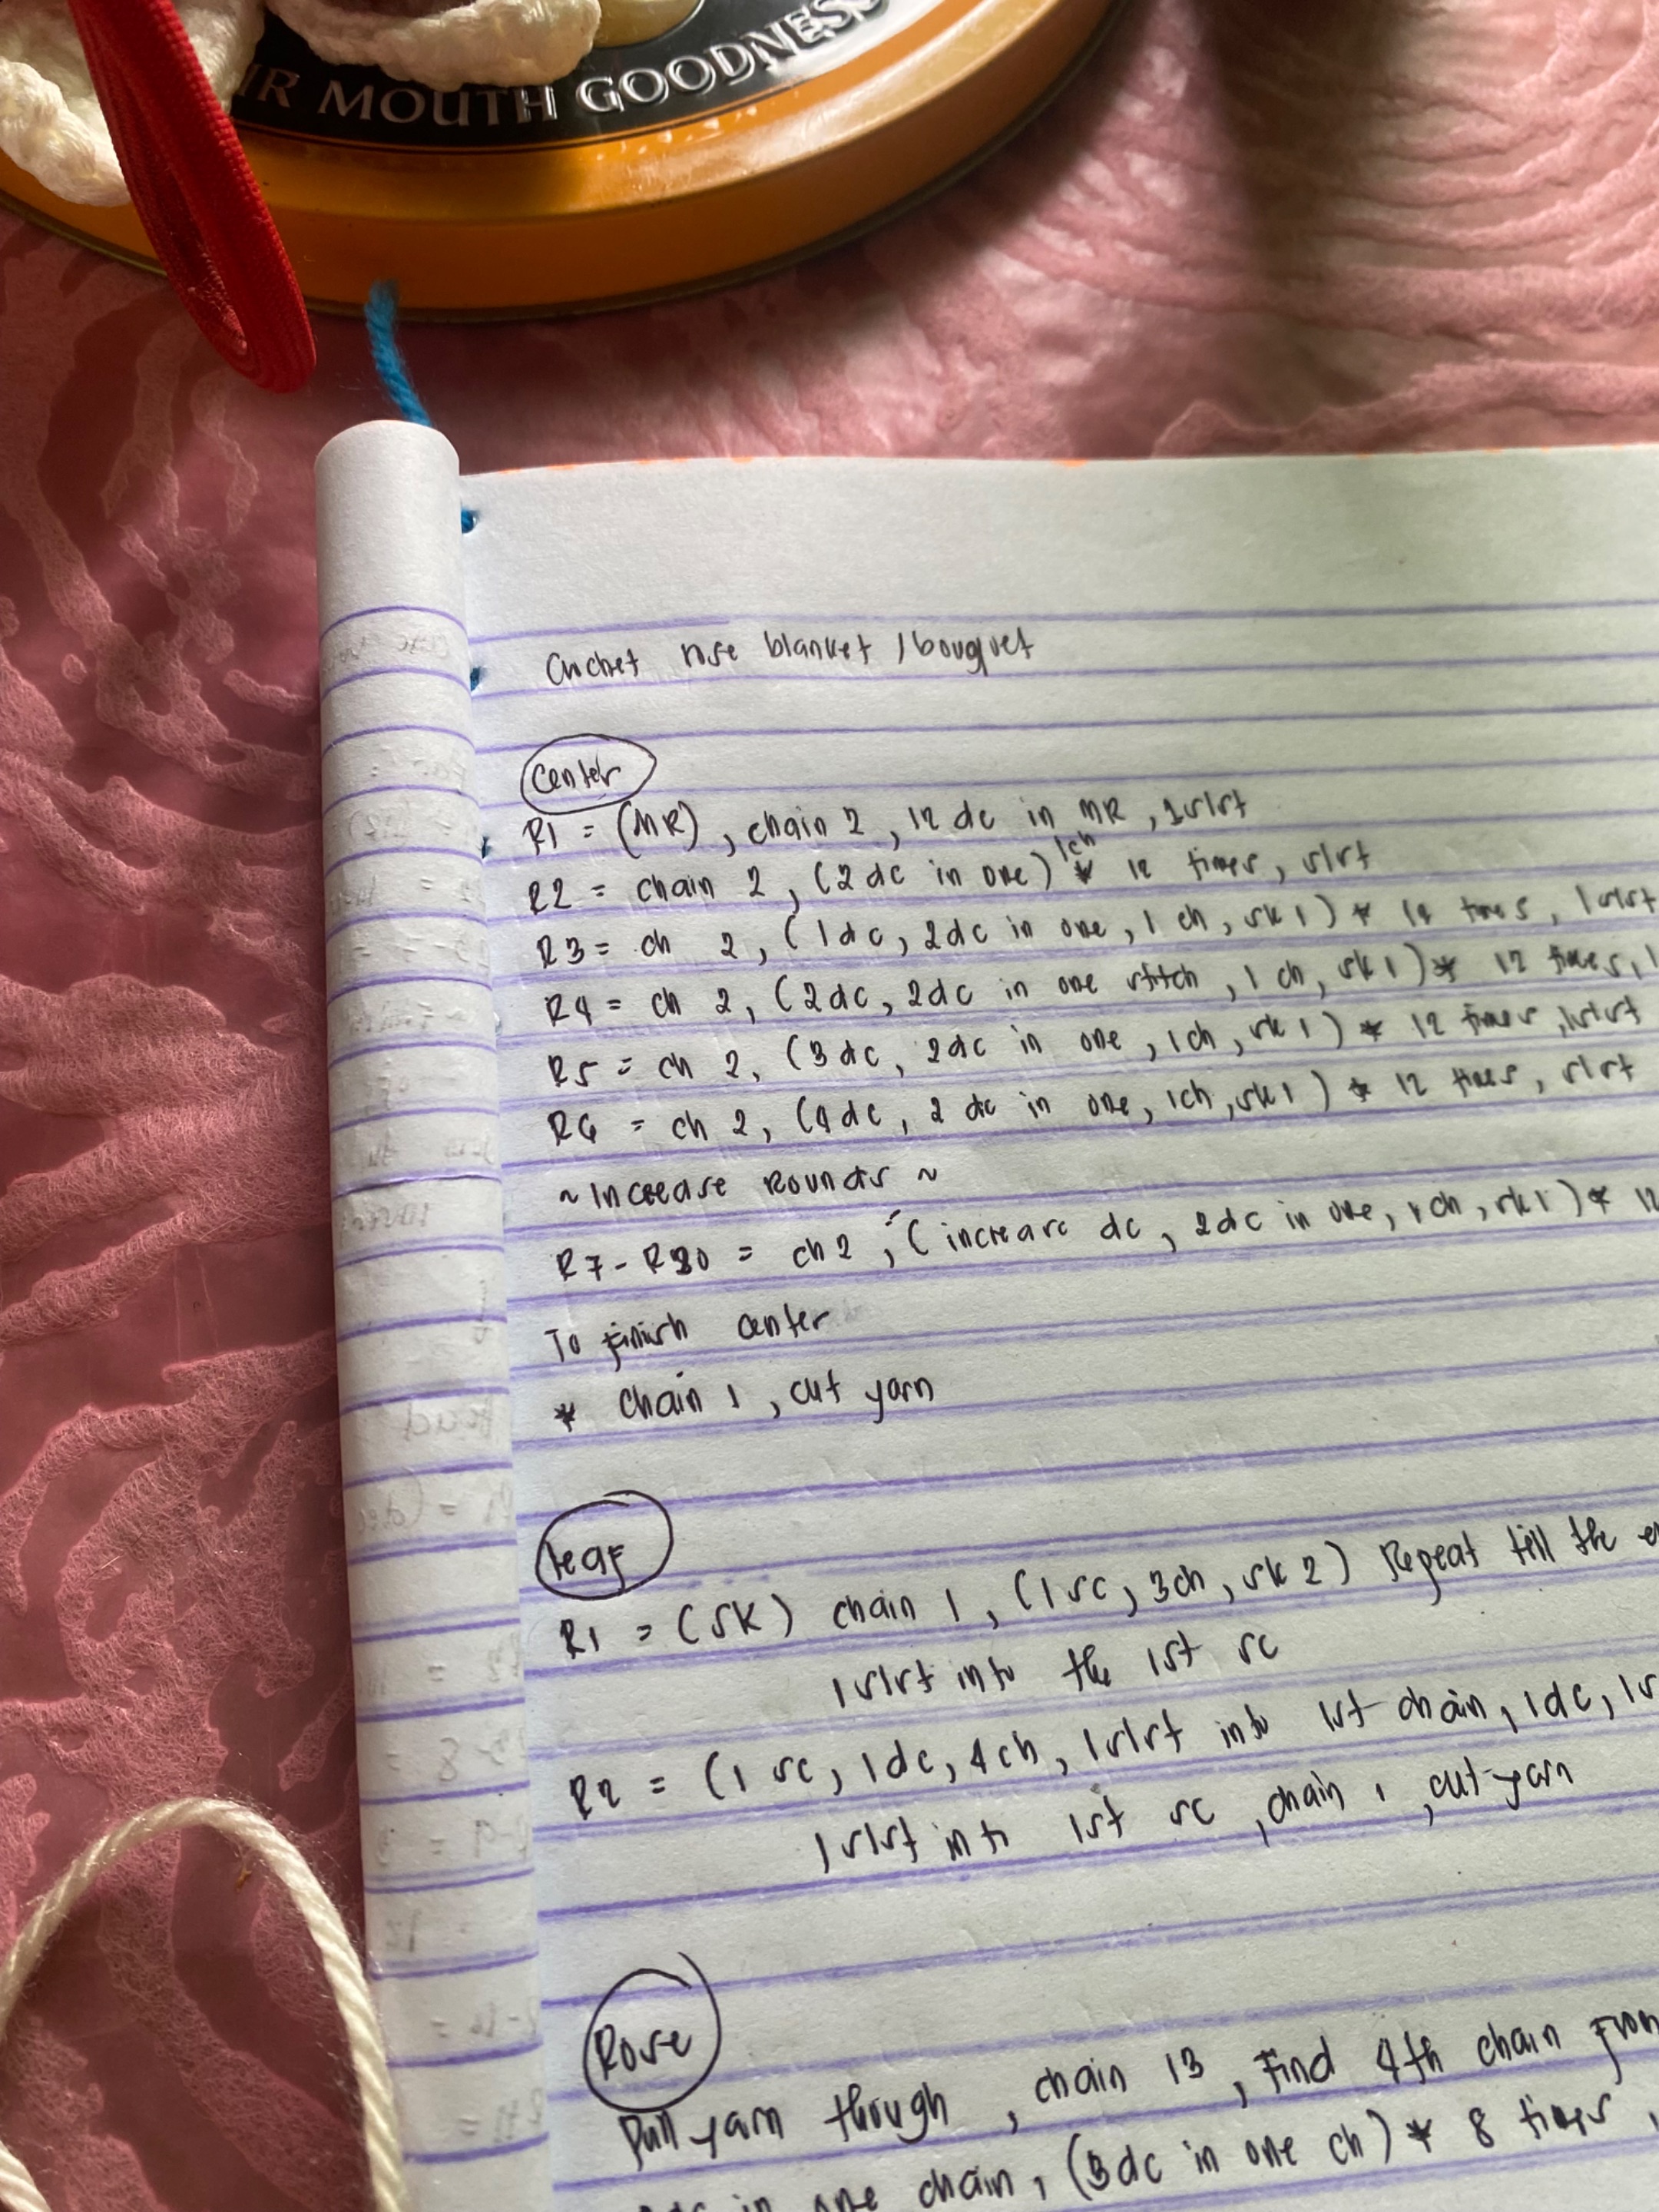 IR MOUTH GOODNESS
Crochet rose blanket / bouquet
Center
R1 = (MR), chain 2, 12 dc in MR, 1slst
1ch
R2 = chain 2, (2 dc in one) * 12 times, slst
R3 = ch 2, (1dc, 2dc in one, 1 ch, sk 1) * 12 times, 1slst
R4 = ch 2, (2dc, 2dc in one stitch, 1 ch, sk 1) * 12 times, 1
R5 = ch 2, (3dc, 2dc in one, 1ch, sk 1) * 12 times, 1slst
R6 = ch 2, (4dc, 2 dc in one, 1ch, sk 1) * 12 times, slst
~ Increase Rounds ~
R7 - = ch 2, (increase dc, 2dc in one, 1 ch, sk 1) * 12
To finish center
* chain 1, cut yarn
leaf
R1 = (SK) chain 1, (1 sc, 3ch, sk 2) Repeat till the
1slst into the 1st sc
R2 = (1 sc, 1dc, 4ch, 1slst into 1st chain, 1dc, 1s
1slst into 1st sc, chain 1, cut yarn
Rose
Pull yarn though, chain 13, Find 4th chain From
in one chain, (3dc in one ch) * 8 times,